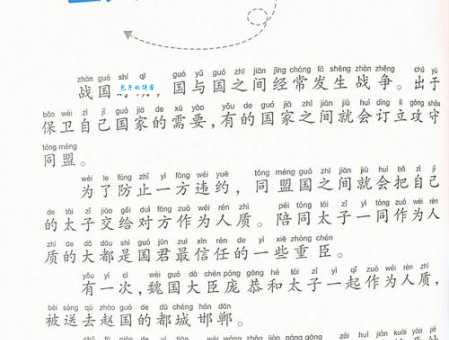 zhàn guó shí qī guó yǔ guó zhī jiān jīng cháng fā shēng zhàn zhēng chū yú
战国 国与国之间经常发生战争。出于
bǎo wèi zì jǐ guó jiā de xū yào yǒu de guó jiā zhī jiān jiù huì dìng lì gōng shǒu
保卫自己国家的需要，有的国家之间就会订立攻守
tóng méng
同盟。
wèi le fáng zhǐ yì fāng wéi yuē tóng méng guó zhī jiān jiù huì bǎ zì jǐ
为了防止一方违约，同盟国之间就会把自己
de tài zǐ jiāo gěi duì fāng zuò wéi rén zhì péi tóng tài zǐ yì tóng zuò wéi rén
的太子交给对方作为人质。陪同太子一同作为人
zhì de dà dōu shì guó jūn zuì xìn rèn de yì xiē zhòng chén
质的大都是国君最信任的一些重臣。
yǒu yí cì wèi guó dà chén páng gōng hé tài zǐ yì qǐ zuò wéi rén zhì
有一次，魏国大臣庞恭和太子一起作为人质，
bèi sòng qù zhào guó de dū chéng hán dān
被送去赵国的都城邯郸。